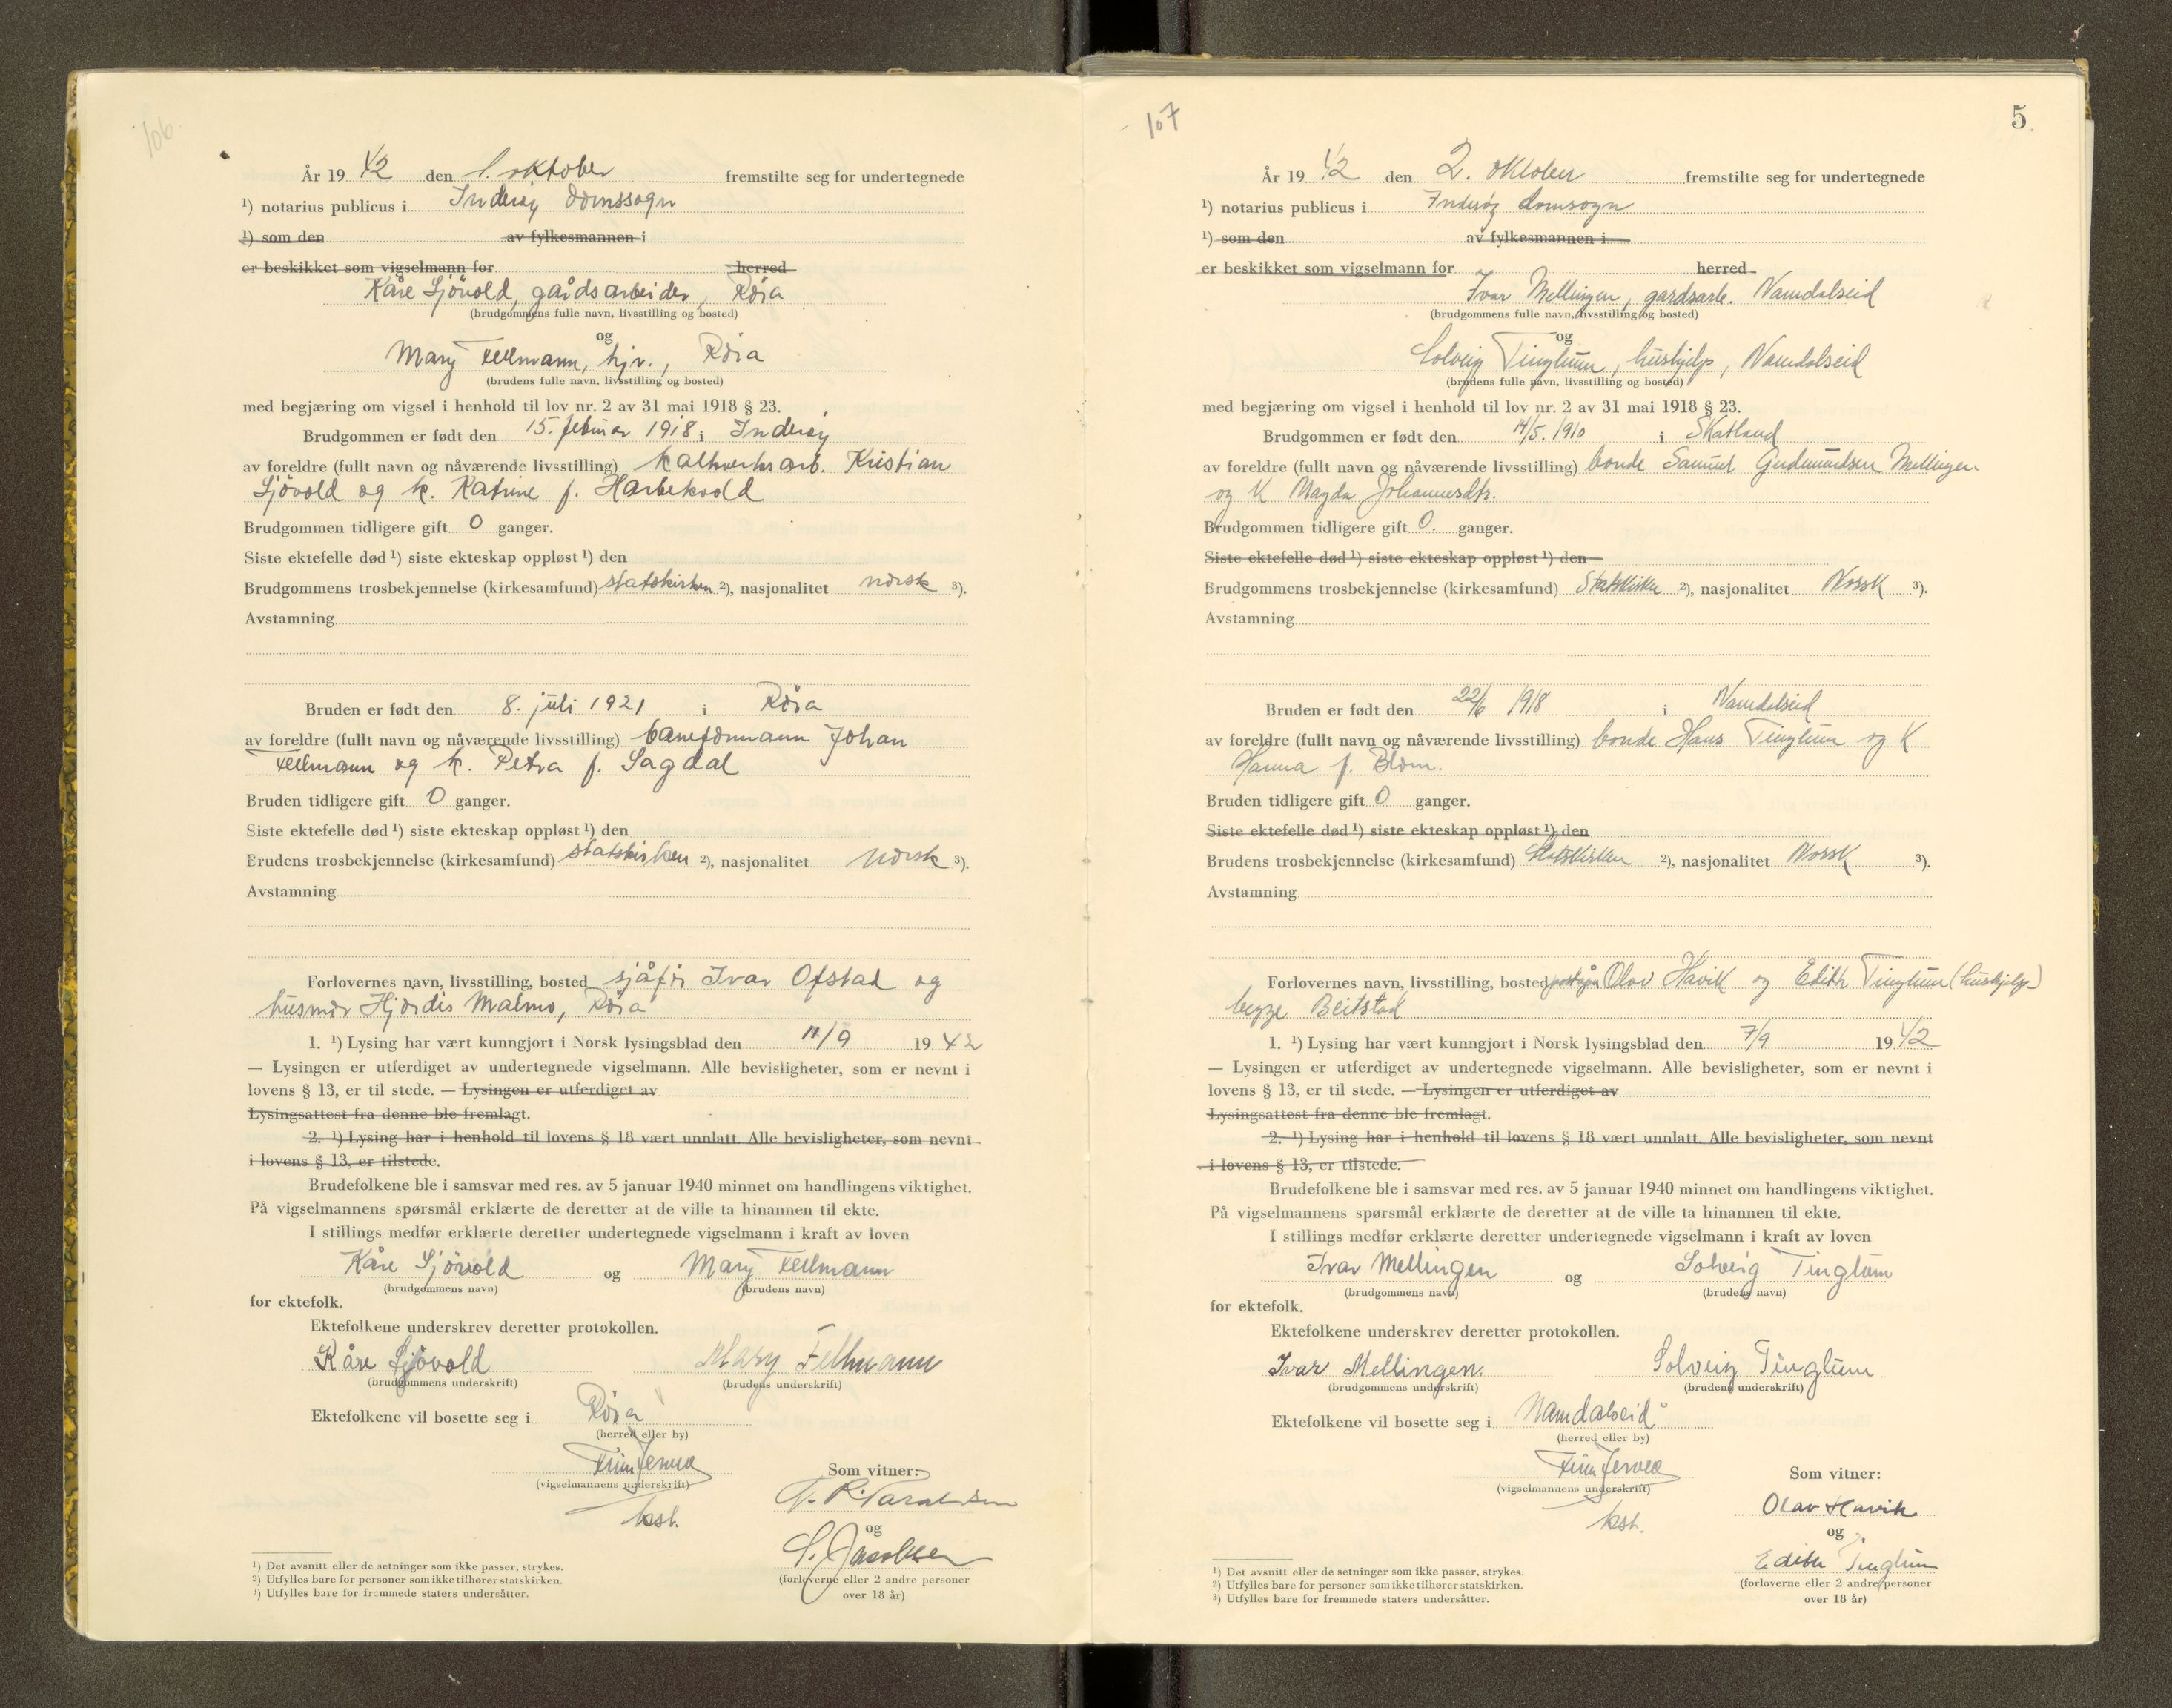 106
År 19 42 den 1. oktober fremstilte seg for undertegnede
¹) notarius publicus i Inderøy domssogn
¹) som den av fylkesmannen i
er beskikket som vigselmann for herred
Kåre Sjövold, gårdsarbeider, Röra
(brudgommens fulle navn, livsstilling og bosted)
og
Mary Fellmann, hjv., Röra
(brudens fulle navn, livsstilling og bosted)
med begjæring om vigsel i henhold til lov nr. 2 av 31 mai 1918 § 23.
Brudgommen er født den 15. februar 1918 i Inderøy
av foreldre (fullt navn og nåværende livsstilling) kalkverksarb. Kristian
Sjövold og k. Katrine f. Harbekvold
Brudgommen tidligere gift 0 ganger.
Siste ektefelle død ¹) siste ekteskap oppløst ¹) den
Brudgommens trosbekjennelse (kirkesamfund) statskirken ²), nasjonalitet norsk ³).
Avstamning
Bruden er født den 8. juli 1921 i Röra
av foreldre (fullt navn og nåværende livsstilling) baneformann Johan
Fellmann og k. Petra f. Sagdal
Bruden tidligere gift 0 ganger.
Siste ektefelle død ¹) siste ekteskap oppløst ¹) den
Brudens trosbekjennelse (kirkesamfund) statskirken ²), nasjonalitet norsk ³).
Avstamning
Forlovernes navn, livsstilling, bosted sjåför Ivar Ofstad og
husmor Hjördis Malmo, Röra
1. ¹) Lysing har vært kunngjort i Norsk lysingsblad den 11/9 19 42
— Lysingen er utferdiget av undertegnede vigselmann. Alle bevisligheter, som er nevnt i
lovens § 13, er til stede. — Lysingen er utferdiget av
Lysingsattest fra denne ble fremlagt.
2. ¹) Lysing har i henhold til lovens § 18 vært unnlatt. Alle bevisligheter, som nevnt
i lovens § 13, er tilstede.
Brudefolkene ble i samsvar med res. av 5 januar 1940 minnet om handlingens viktighet.
På vigselmannens spørsmål erklærte de deretter at de ville ta hinannen til ekte.
I stillings medfør erklærte deretter undertegnede vigselmann i kraft av loven
Kåre Sjövold og Mary Fellmann
(brudgommens navn) (brudens navn)
for ektefolk.
Ektefolkene underskrev deretter protokollen.
Kåre Sjövold Mary Fellmann
(brudgommens underskrift) (brudens underskrift)
Ektefolkene vil bosette seg i Röra
(herred eller by)
Som vitner:
(vigselmannens underskrift)
kst.
og
S. Jacobsen
(forloverne eller 2 andre personer
over 18 år)
¹) Det avsnitt eller de setninger som ikke passer, strykes.
²) Utfylles bare for personer som ikke tilhører statskirken.
³) Utfylles bare for fremmede staters undersåtter.
107
5
År 19 42 den 2. oktober fremstilte seg for undertegnede
¹) notarius publicus i Inderøy domsogn
¹) som den av fylkesmannen i
er beskikket som vigselmann for herred
Ivar Mellingen, gardsarb. Namdalseid
(brudgommens fulle navn, livsstilling og bosted)
og
Solveig Tinglum, hushjelp, Namdalseid
(brudens fulle navn, livsstilling og bosted)
med begjæring om vigsel i henhold til lov nr. 2 av 31 mai 1918 § 23.
Brudgommen er født den 14/5. 1910 i Skatland
av foreldre (fullt navn og nåværende livsstilling) bonde Samuel Gudmundsen Mellingen
og K Magda Johannesdtr.
Brudgommen tidligere gift 0. ganger.
Siste ektefelle død ¹) siste ekteskap oppløst ¹) den
Brudgommens trosbekjennelse (kirkesamfund) Statskirken ²), nasjonalitet Norsk ³).
Avstamning
Bruden er født den 22/6 1918 i Namdalseid
av foreldre (fullt navn og nåværende livsstilling) bonde Hans Tinglum og K
Hanna f. Blom.
Bruden tidligere gift 0 ganger.
Siste ektefelle død ¹) siste ekteskap oppløst ¹) den
Brudens trosbekjennelse (kirkesamfund) Statskirken ²), nasjonalitet Norsk ³).
Avstamning
Forlovernes navn, livsstilling, bosted Olav Havik og Edith Tinglum (hushjelp)
begge Beitstad
1. ¹) Lysing har vært kunngjort i Norsk lysingsblad den 7/9 19 42
— Lysingen er utferdiget av undertegnede vigselmann. Alle bevisligheter, som er nevnt i
lovens § 13, er til stede. — Lysingen er utferdiget av
Lysingsattest fra denne ble fremlagt.
2. ¹) Lysing har i henhold til lovens § 18 vært unnlatt. Alle bevisligheter, som nevnt
i lovens § 13, er tilstede.
Brudefolkene ble i samsvar med res. av 5 januar 1940 minnet om handlingens viktighet.
På vigselmannens spørsmål erklærte de deretter at de ville ta hinannen til ekte.
I stillings medfør erklærte deretter undertegnede vigselmann i kraft av loven
Ivar Mellingen og Solveig Tinglum
(brudgommens navn) (brudens navn)
for ektefolk.
Ektefolkene underskrev deretter protokollen.
Ivar Mellingen. Solveig Tinglum
(brudgommens underskrift) (brudens underskrift)
Ektefolkene vil bosette seg i Namdalseid
(herred eller by)
Som vitner:
(vigselmannens underskrift)
Olav Havik
kst.
og
Edith Tinglum
(forloverne eller 2 andre personer
over 18 år)
¹) Det avsnitt eller de setninger som ikke passer, strykes.
²) Utfylles bare for personer som ikke tilhører statskirken.
³) Utfylles bare for fremmede staters undersåtter.